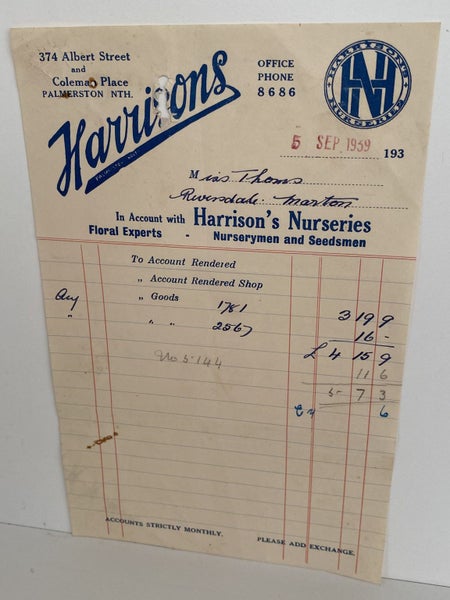 374 Albert Street
and
Coleman Place
PALMERSTON NTH.
Harrisons
PALMERSTON NTH.
OFFICE
PHONE
8686
HARRISONS
HN
NURSERIES
5 SEP 1939
193
Miss Thoms
Riversdale. Marton
In Account with Harrison's Nurseries
Floral Experts - Nurserymen and Seedsmen
To Account Rendered
„ Account Rendered Shop
Aug „ Goods 1781 3 19 9
" „ „ 2567 16 -
£ 4 15 9
No 5144 11 6
5 - 7 3
6
ACCOUNTS STRICTLY MONTHLY.
PLEASE ADD EXCHANGE.